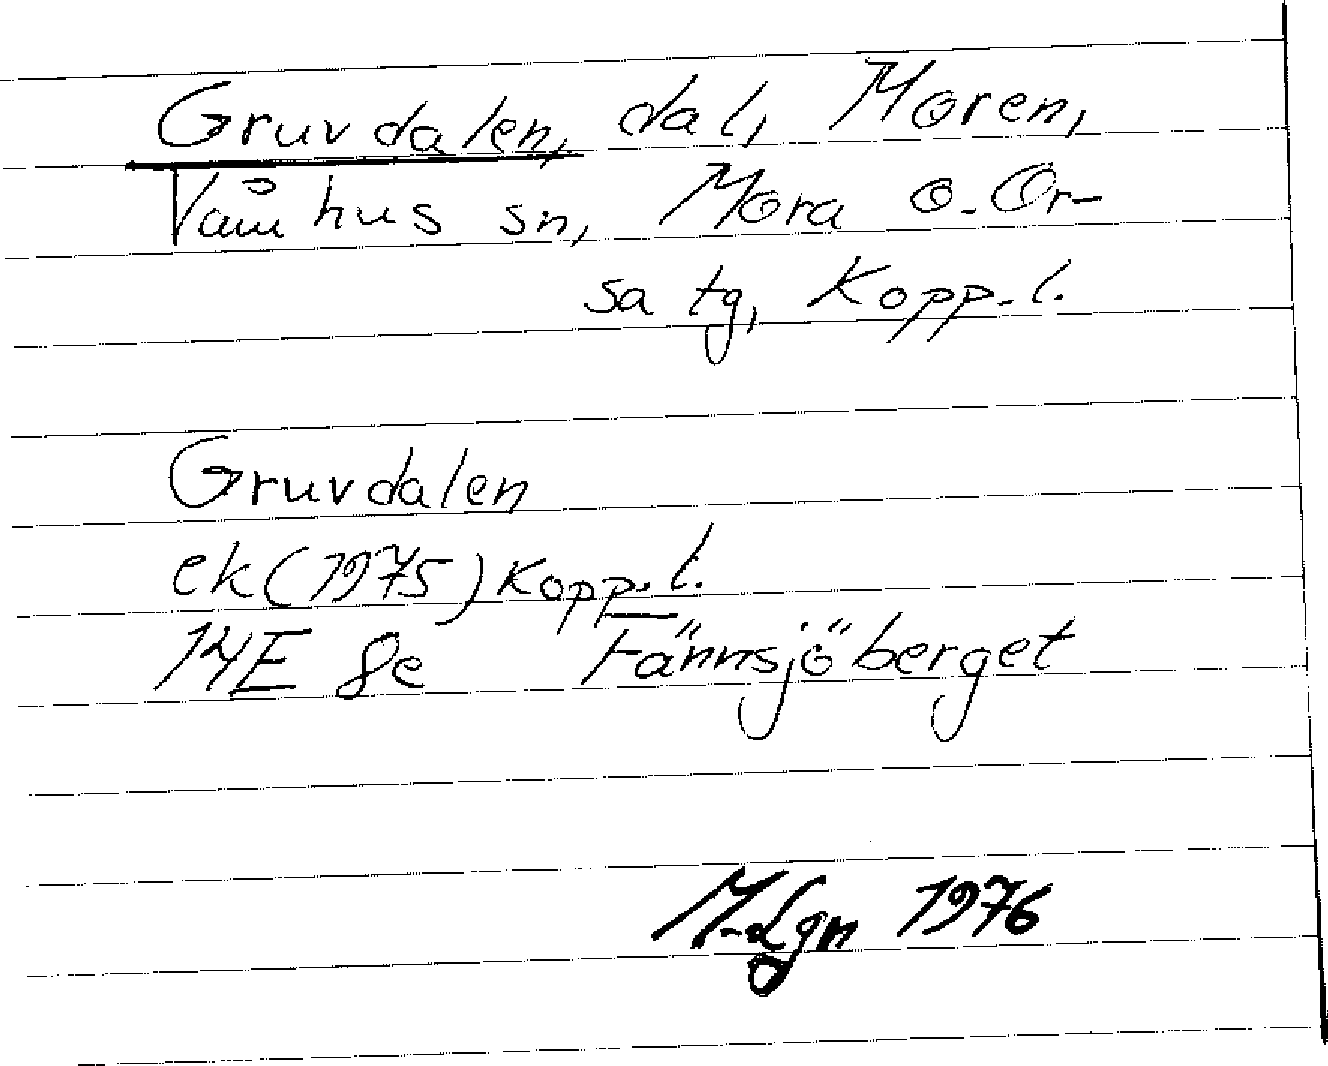 Gruvdalen, dal, Moren,
Våmhus sn, Mora o. Or-
sa tg, Kopp. l.
Gruvdalen
ek (1975) Kopp. l.
14E 8e Fännsjöberget
M. Lgn 1976